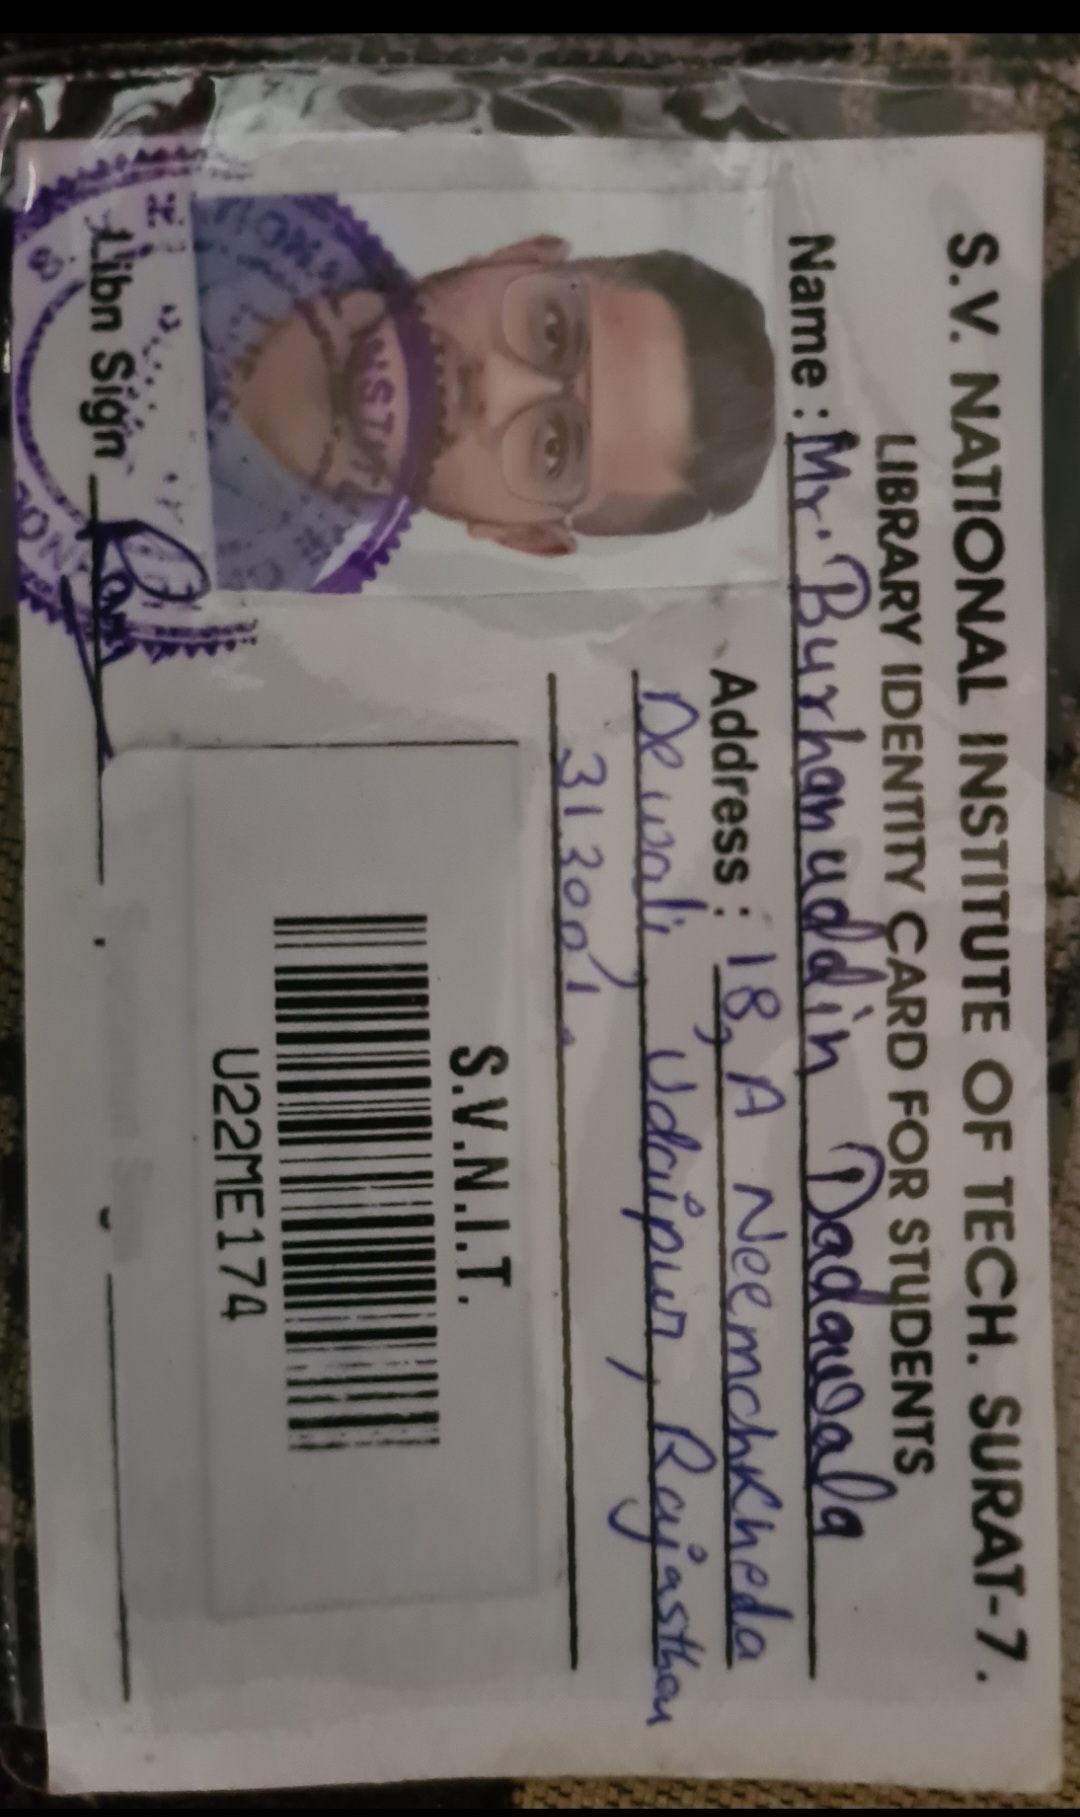 S.V. NATIONAL INSTITUTE OF TECH. SURAT-7.
LIBRARY IDENTITY CARD FOR STUDENTS
Name : Mr. Burhanuddin Dadawala
Address : 18, A Neemchkheda
Dewali, Udaipur, Rajasthan
313001.
S.V.N.I.T.
U22ME174
Libn Sign